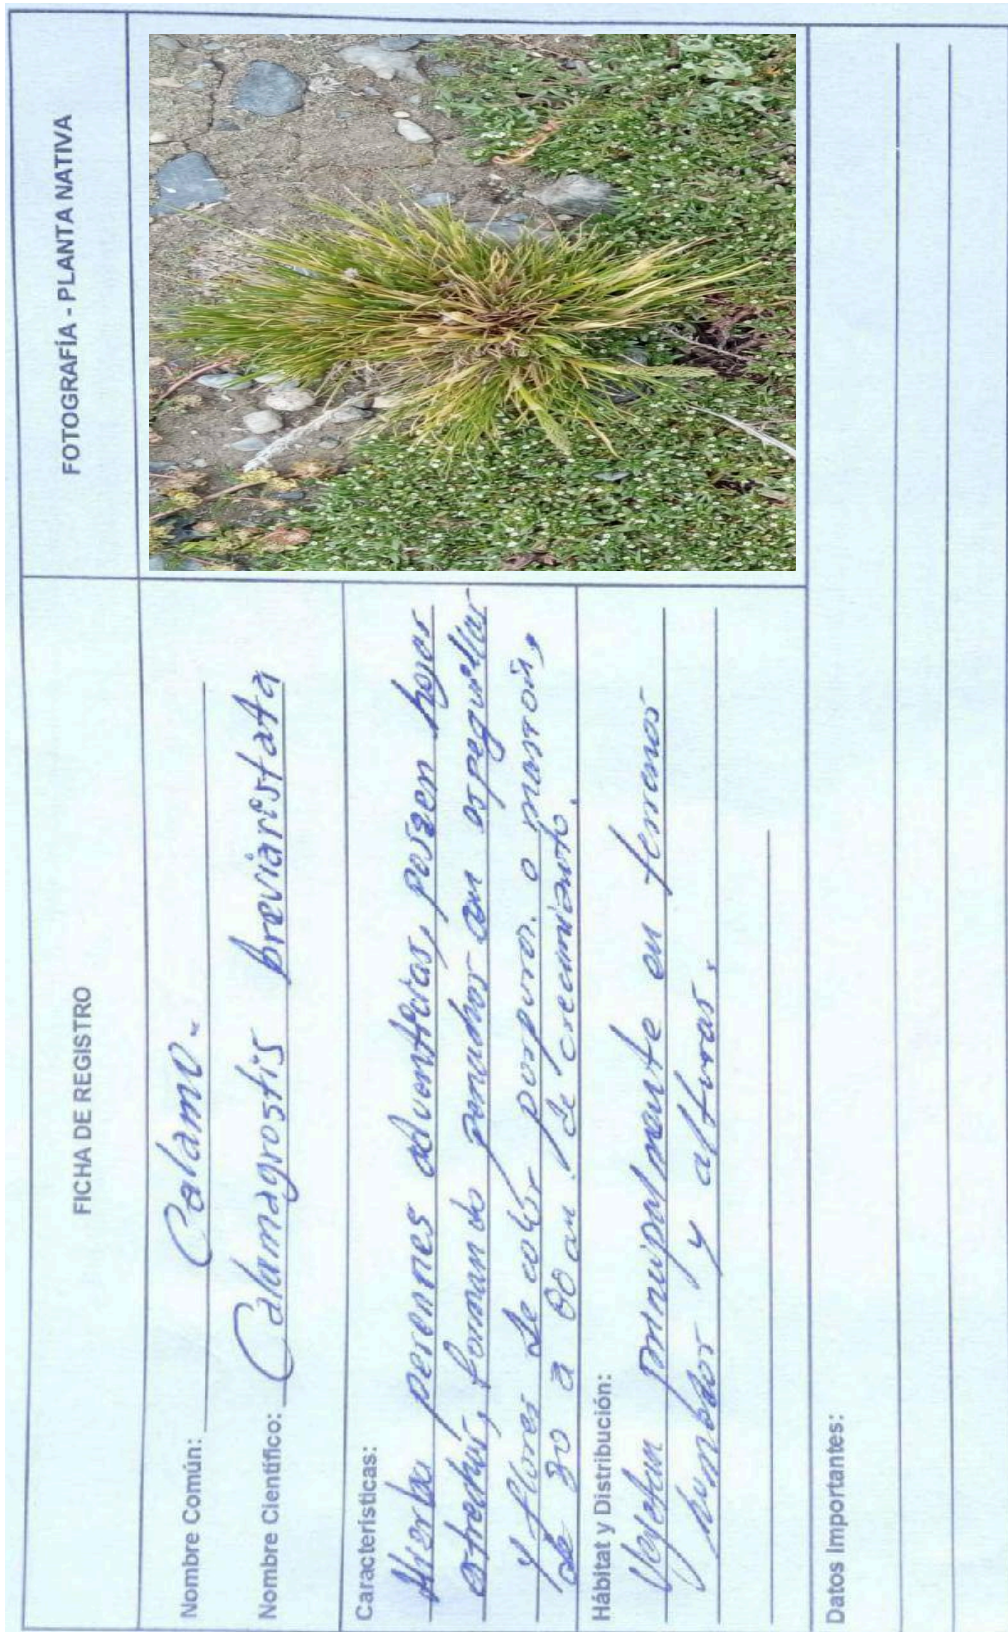 FICHA DE REGISTRO
FOTOGRAFÍA - PLANTA NATIVA
Nombre Común: Calamo.
Nombre Científico: Calamagrostis breviaristata
Características:
Hierba perennes adventicias, poseen hojas
estrechas, formando penachos con espeguillas
y flores de color purpura o marron,
de 30 a 60 cm de crecimiento.
Hábitat y Distribución:
Vejetan principalmente en terrenos
humedos y alturas.
Datos Importantes: